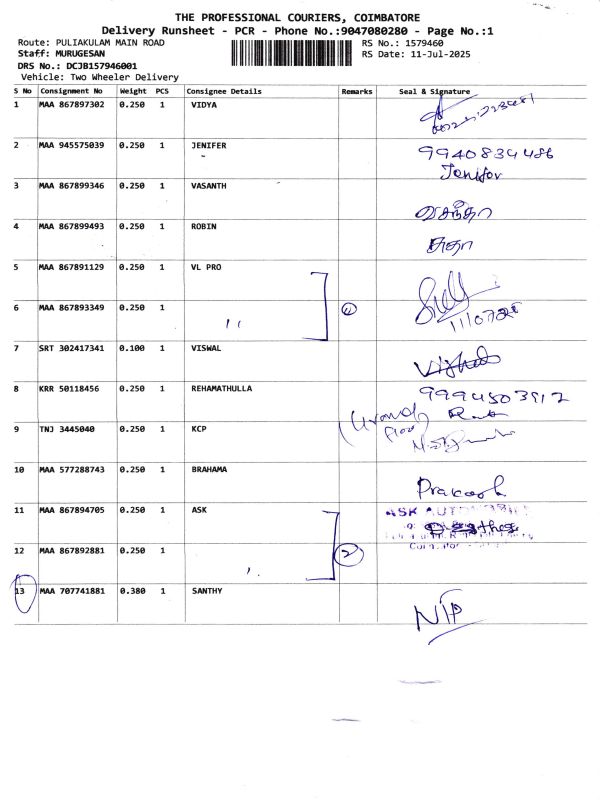 THE PROFESSIONAL COURIERS, COIMBATORE
Delivery Runsheet - PCR - Phone No.:9047080280 - Page No.:1
Route: PULIAKULAM MAIN ROAD
RS No.: 1579460
Staff: MURUGESAN
RS Date: 11-Jul-2025
DRS No.: DCJB157946001
Vehicle: Two Wheeler Delivery
S No Consignment No Weight PCS Consignee Details Remarks Seal & Signature
1 MAA 867897302 0.250 1 VIDYA
2 MAA 945575039 0.250 1 JENIFER 9940834486
Jenifer
3 MAA 867899346 0.250 1 VASANTH
வசந்தா
4 MAA 867899493 0.250 1 ROBIN
சுதா
5 MAA 867891129 0.250 1 VL PRO
6 MAA 867893349 0.250 1
11/07/25
7 SRT 302417341 0.100 1 VISWAL
8 KRR 50118456 0.250 1 REHAMATHULLA 9994503912
(Ground
floor)
9 TNJ 3445040 0.250 1 KCP
10 MAA 577288743 0.250 1 BRAHAMA
Prakash
11 MAA 867894705 0.250 1 ASK
ASK AUTOMOBILE
12 MAA 867892881 0.250 1
2
13 MAA 707741881 0.380 1 SANTHY
NIP